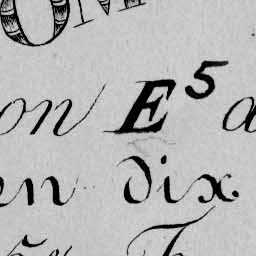 OM
on E⁵ a
en dix.